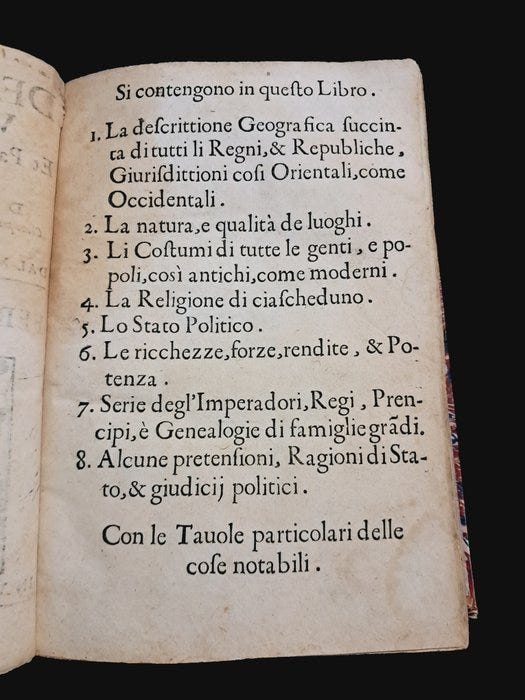 Si contengono in queſto Libro.
1. La deſcrittione Geografica ſuccin-
ta di tutti li Regni, & Republiche,
Giuriſdittioni coſi Orientali, come
Occidentali.
2. La natura, e qualità de luoghi.
3. Li Coſtumi di tutte le genti, e po-
poli, così antichi, come moderni.
4. La Religione di ciaſcheduno.
5. Lo Stato Politico.
6. Le ricchezze, forze, rendite, & Po-
tenza.
7. Serie degl'Imperadori, Regi, Pren-
cipi, è Genealogie di famiglie grãdi.
8. Alcune pretenſioni, Ragioni di Sta-
to, & giudicij politici.
Con le Tauole particolari delle
coſe notabili.